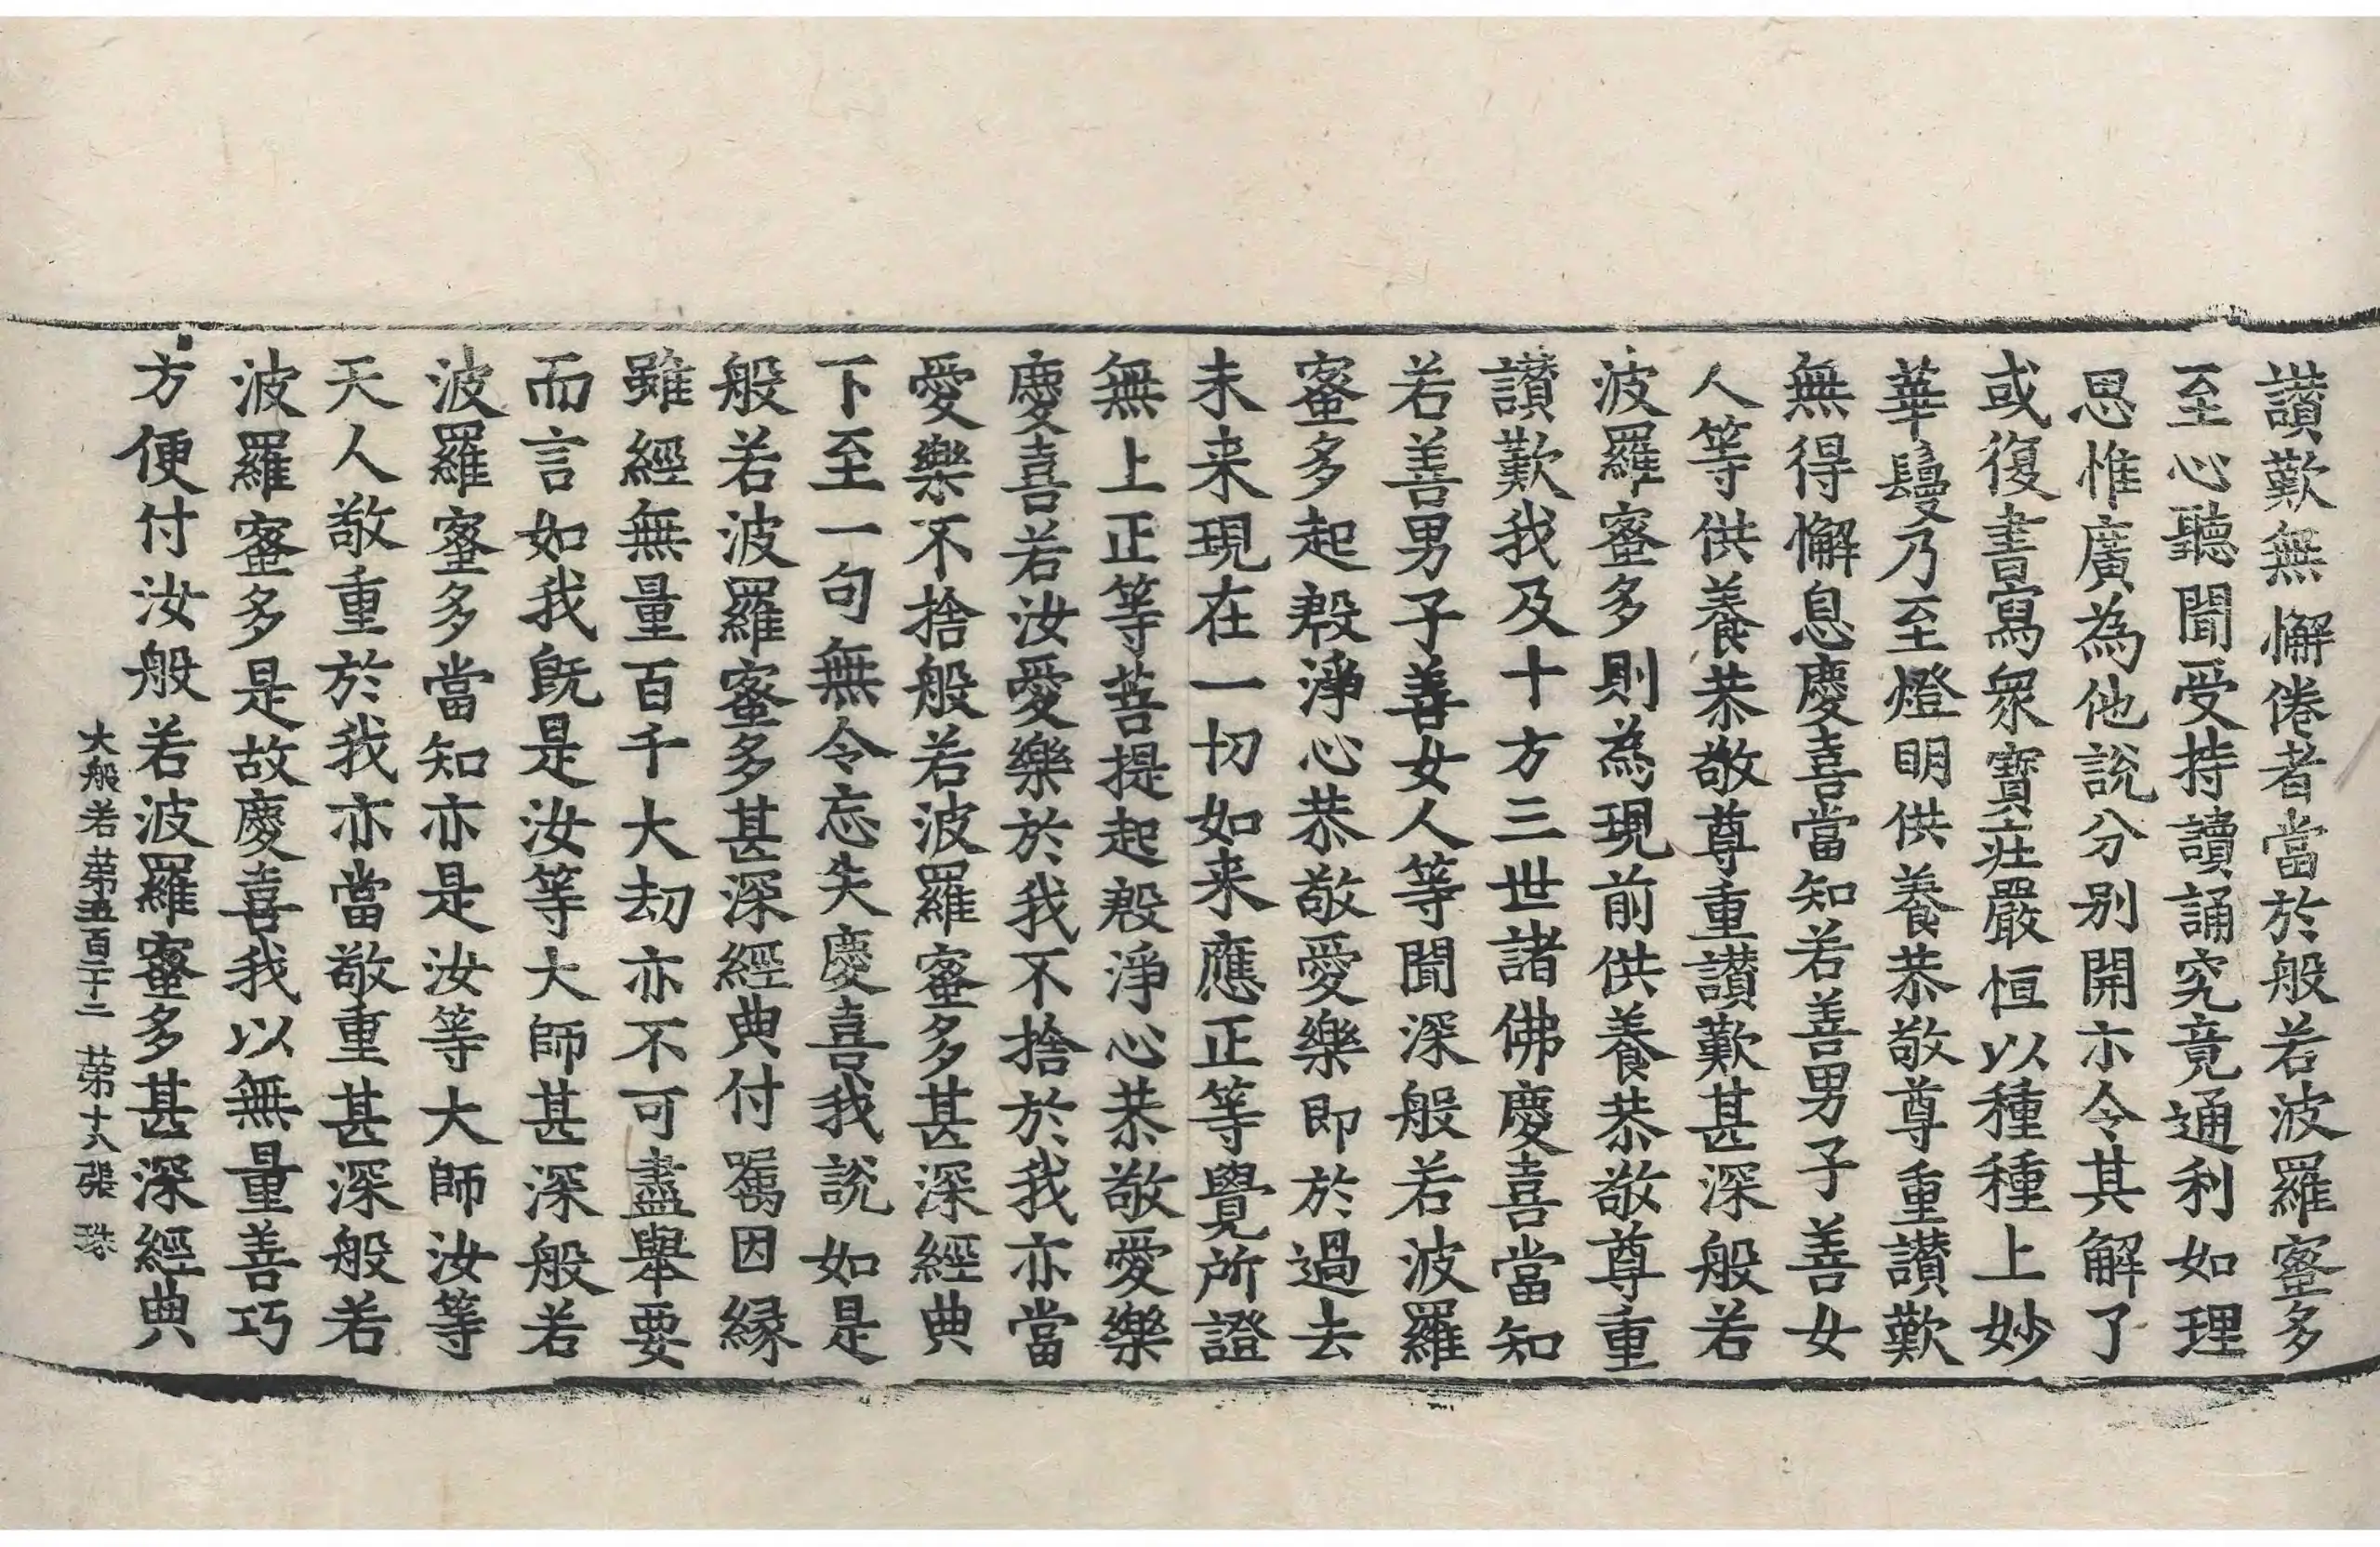 讃歎無懈倦者當於般若波羅蜜多
至心聽聞受持讀誦究竟通利如理
思惟廣為他說分別開示令其解了
或復書寫衆寶莊嚴恒以種種上妙
華鬘乃至燈明供養恭敬尊重讃歎
無得懈息慶喜當知若善男子善女
人等供養恭敬尊重讃歎甚深般若
波羅蜜多則為現前供養恭敬尊重
讃歎我及十方三世諸佛慶喜當知
若善男子善女人等聞深般若波羅
蜜多起殷淨心恭敬愛樂即於過去
未来現在一切如来應正等覺所證
無上正等菩提起殷淨心恭敬愛樂
慶喜若汝愛樂於我不捨於我亦當
愛樂不捨般若波羅蜜多甚深經典
下至一句無令忘失慶喜我說如是
般若波羅蜜多甚深經典付囑因縁
雖經無量百千大劫亦不可盡舉要
而言如我既是汝等大師甚深般若
波羅蜜多當知亦是汝等大師汝等
天人敬重於我亦當敬重甚深般若
波羅蜜多是故慶喜我以無量善巧
方便付汝般若波羅蜜多甚深經典
大般若 第五百十二 第十八張